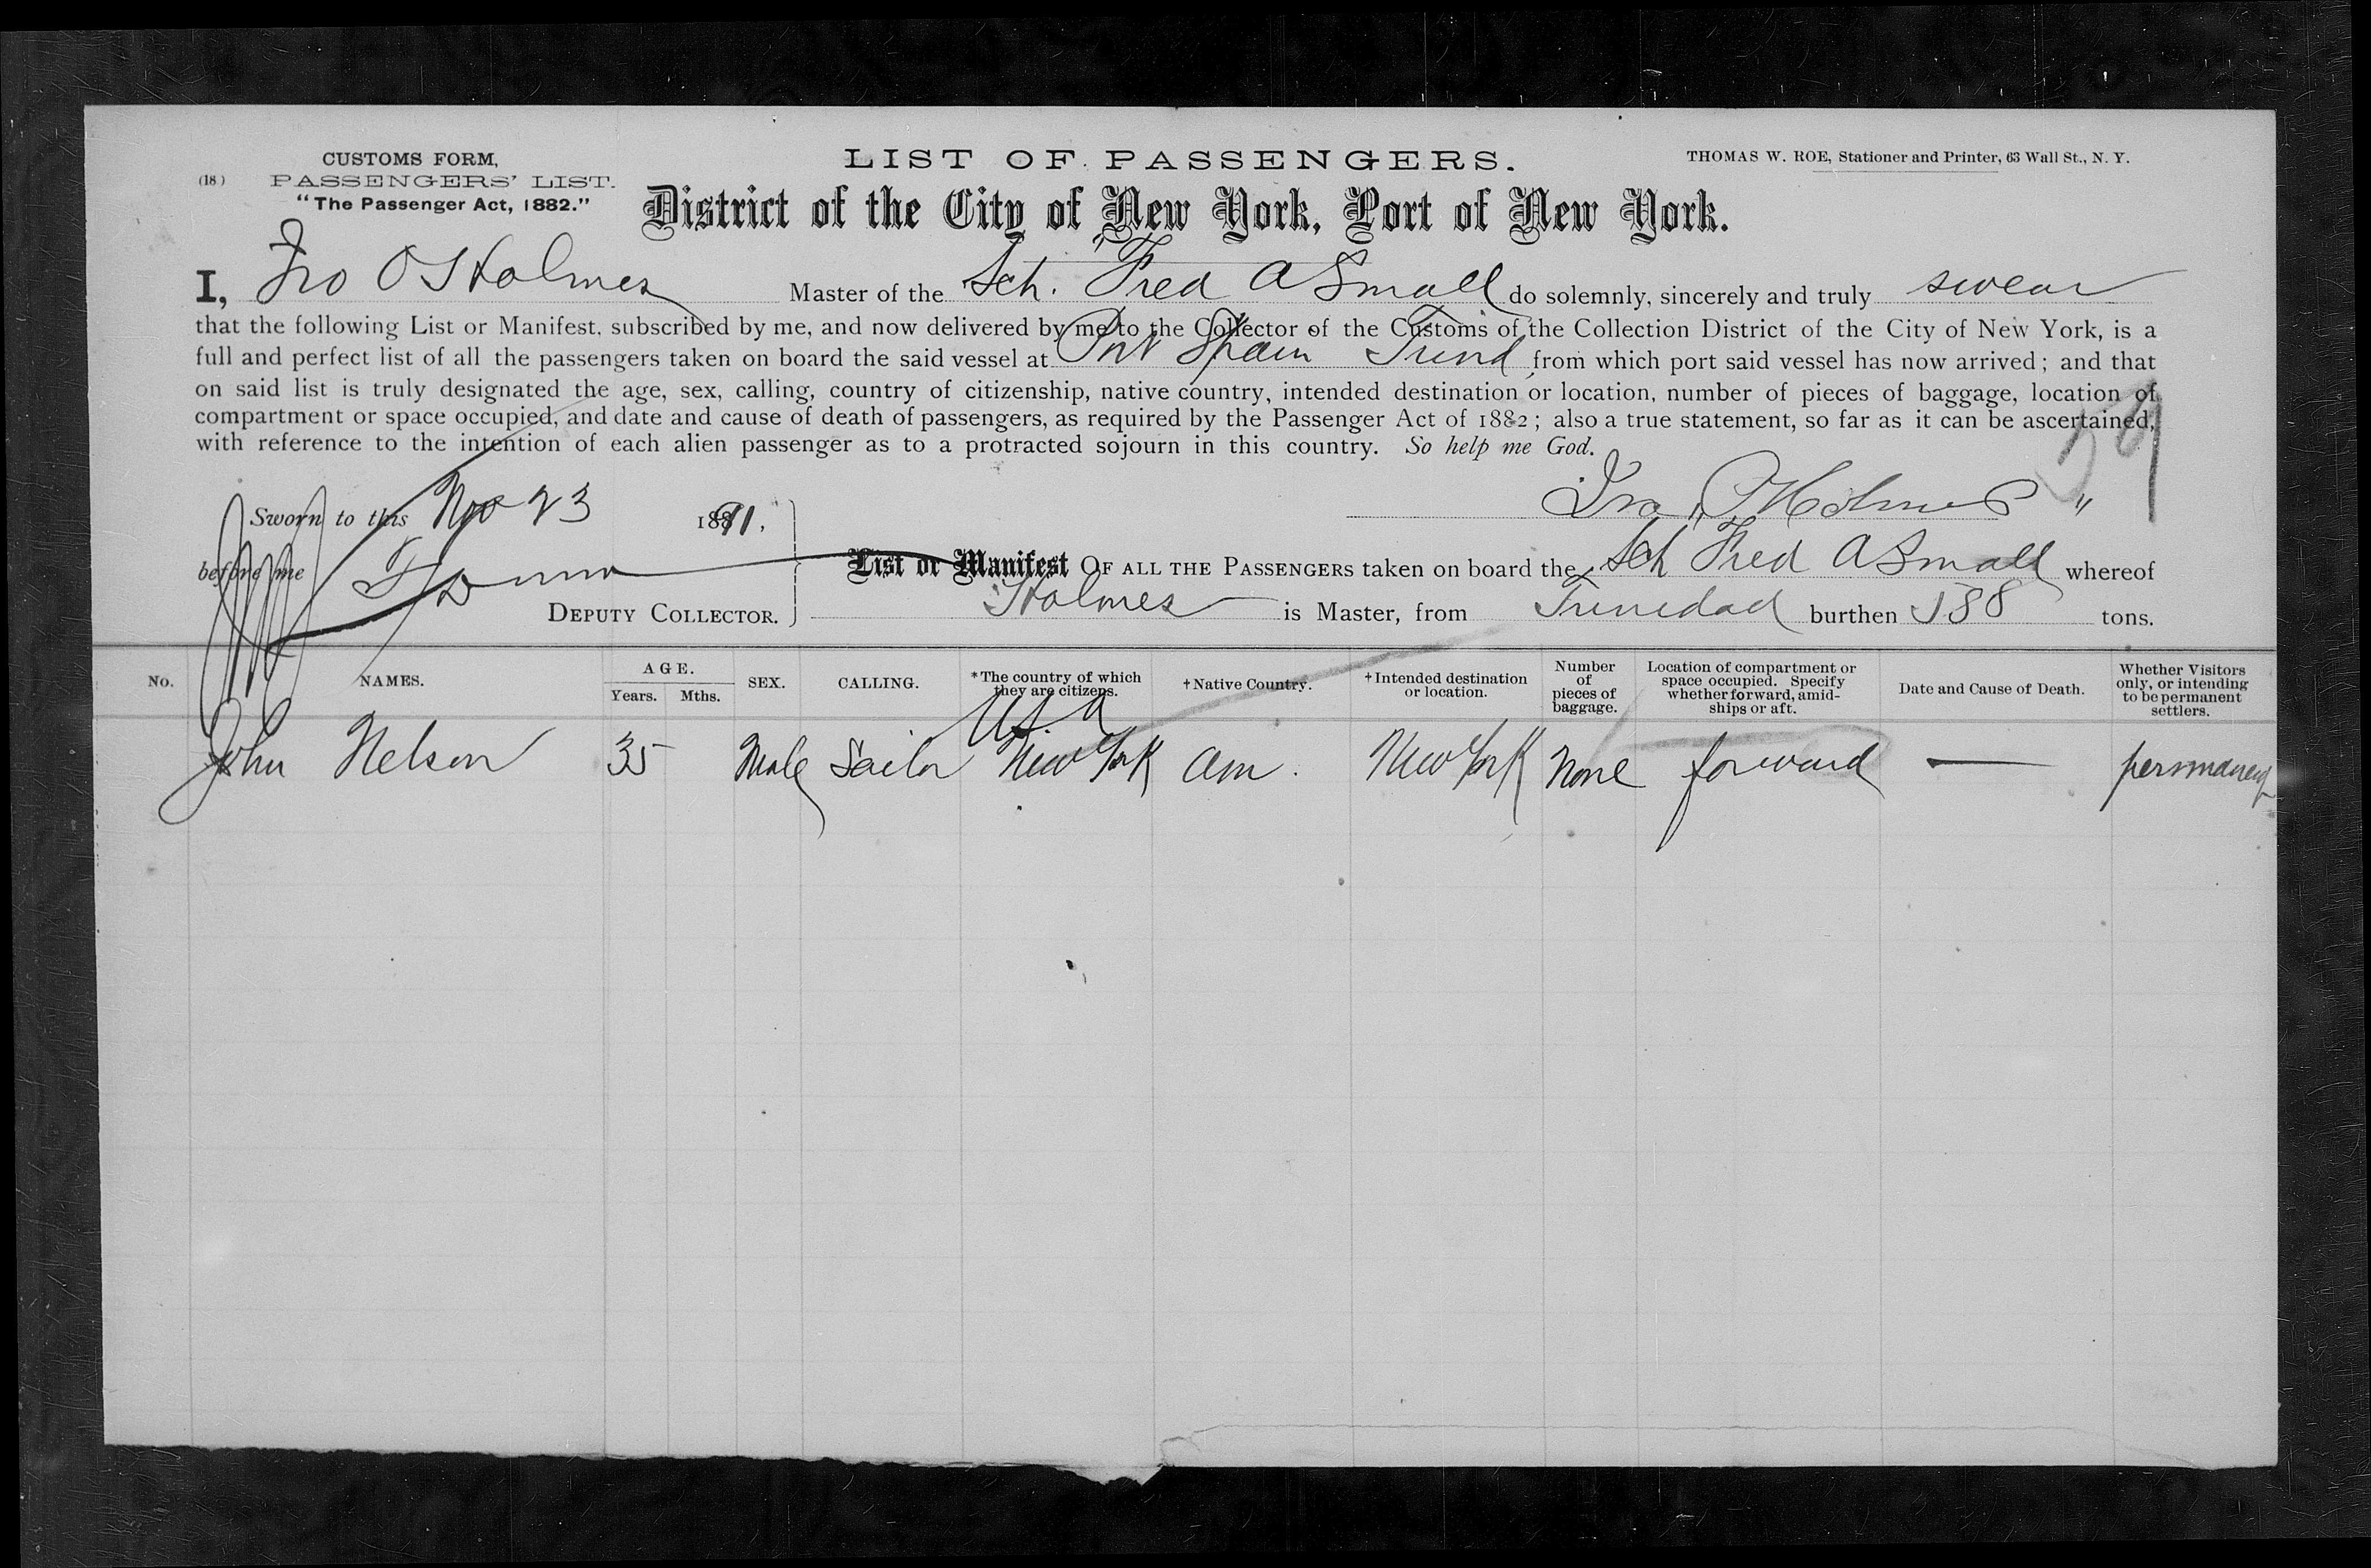 CUSTOMS FORM,
(18) PASSENGERS' LIST.
"The Passenger Act, 1882."
LIST OF PASSENGERS.
THOMAS W. ROE, Stationer and Printer, 63 Wall St., N. Y.
District of the City of New York, Port of New York.
I, O Holmes Master of the Sch. Fred A Small do solemnly, sincerely and truly swear
that the following List or Manifest, subscribed by me, and now delivered by me to the Collector of the Customs of the Collection District of the City of New York, is a
full and perfect list of all the passengers taken on board the said vessel at Port Spain Trind from which port said vessel has now arrived; and that
on said list is truly designated the age, sex, calling, country of citizenship, native country, intended destination or location, number of pieces of baggage, location of
compartment or space occupied, and date and cause of death of passengers, as required by the Passenger Act of 1882; also a true statement, so far as it can be ascertained,
with reference to the intention of each alien passenger as to a protracted sojourn in this country. So help me God.
Holmes
Sworn to this Nov 23 1891.
before me
DEPUTY COLLECTOR.
List or Manifest OF ALL THE PASSENGERS taken on board the Sch Fred A Small whereof
Holmes is Master, from Trinedad burthen tons.
No. NAMES. AGE. Years. Mths. SEX. CALLING. *The country of which they are citizens. †Native Country. †Intended destination or location. Number of pieces of baggage. Location of compartment or space occupied. Specify whether forward, amidships or aft. Date and Cause of Death. Whether Visitors only, or intending to be permanent settlers.
USA
John Nelson 35 Male Sailor New York Am. New York None forward —